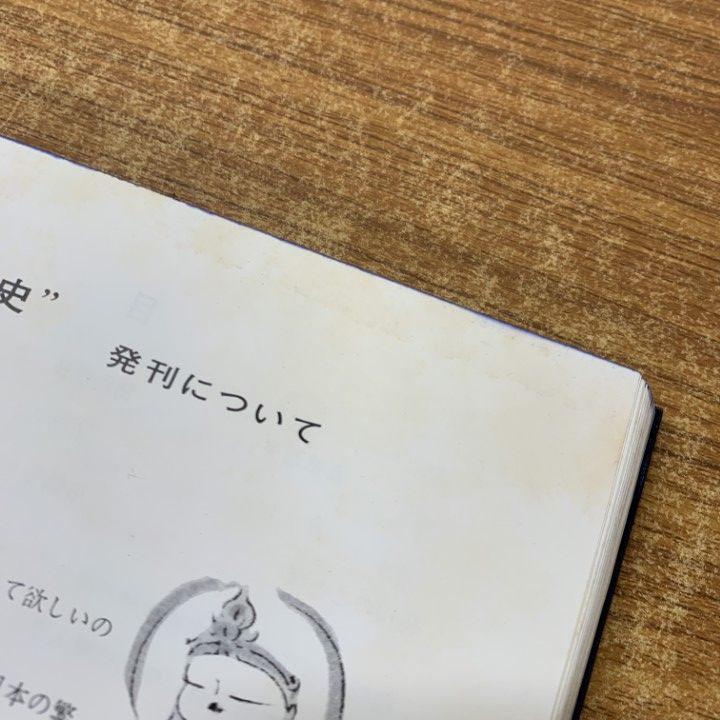 史”
発刊について
て欲しいの
日本の繁